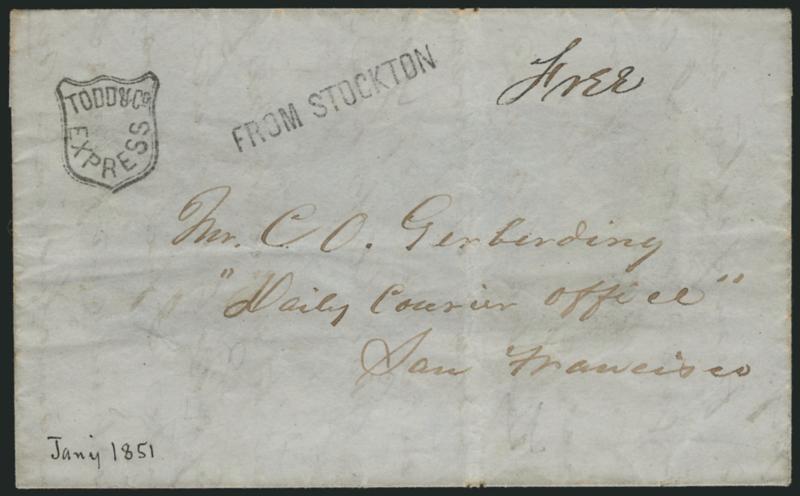 TODD & Co.
EXPRESS
FROM STOCKTON
Free
Mr. C. O. Gerberding
"Daily Courier office"
San Francisco
Jan'y 1851